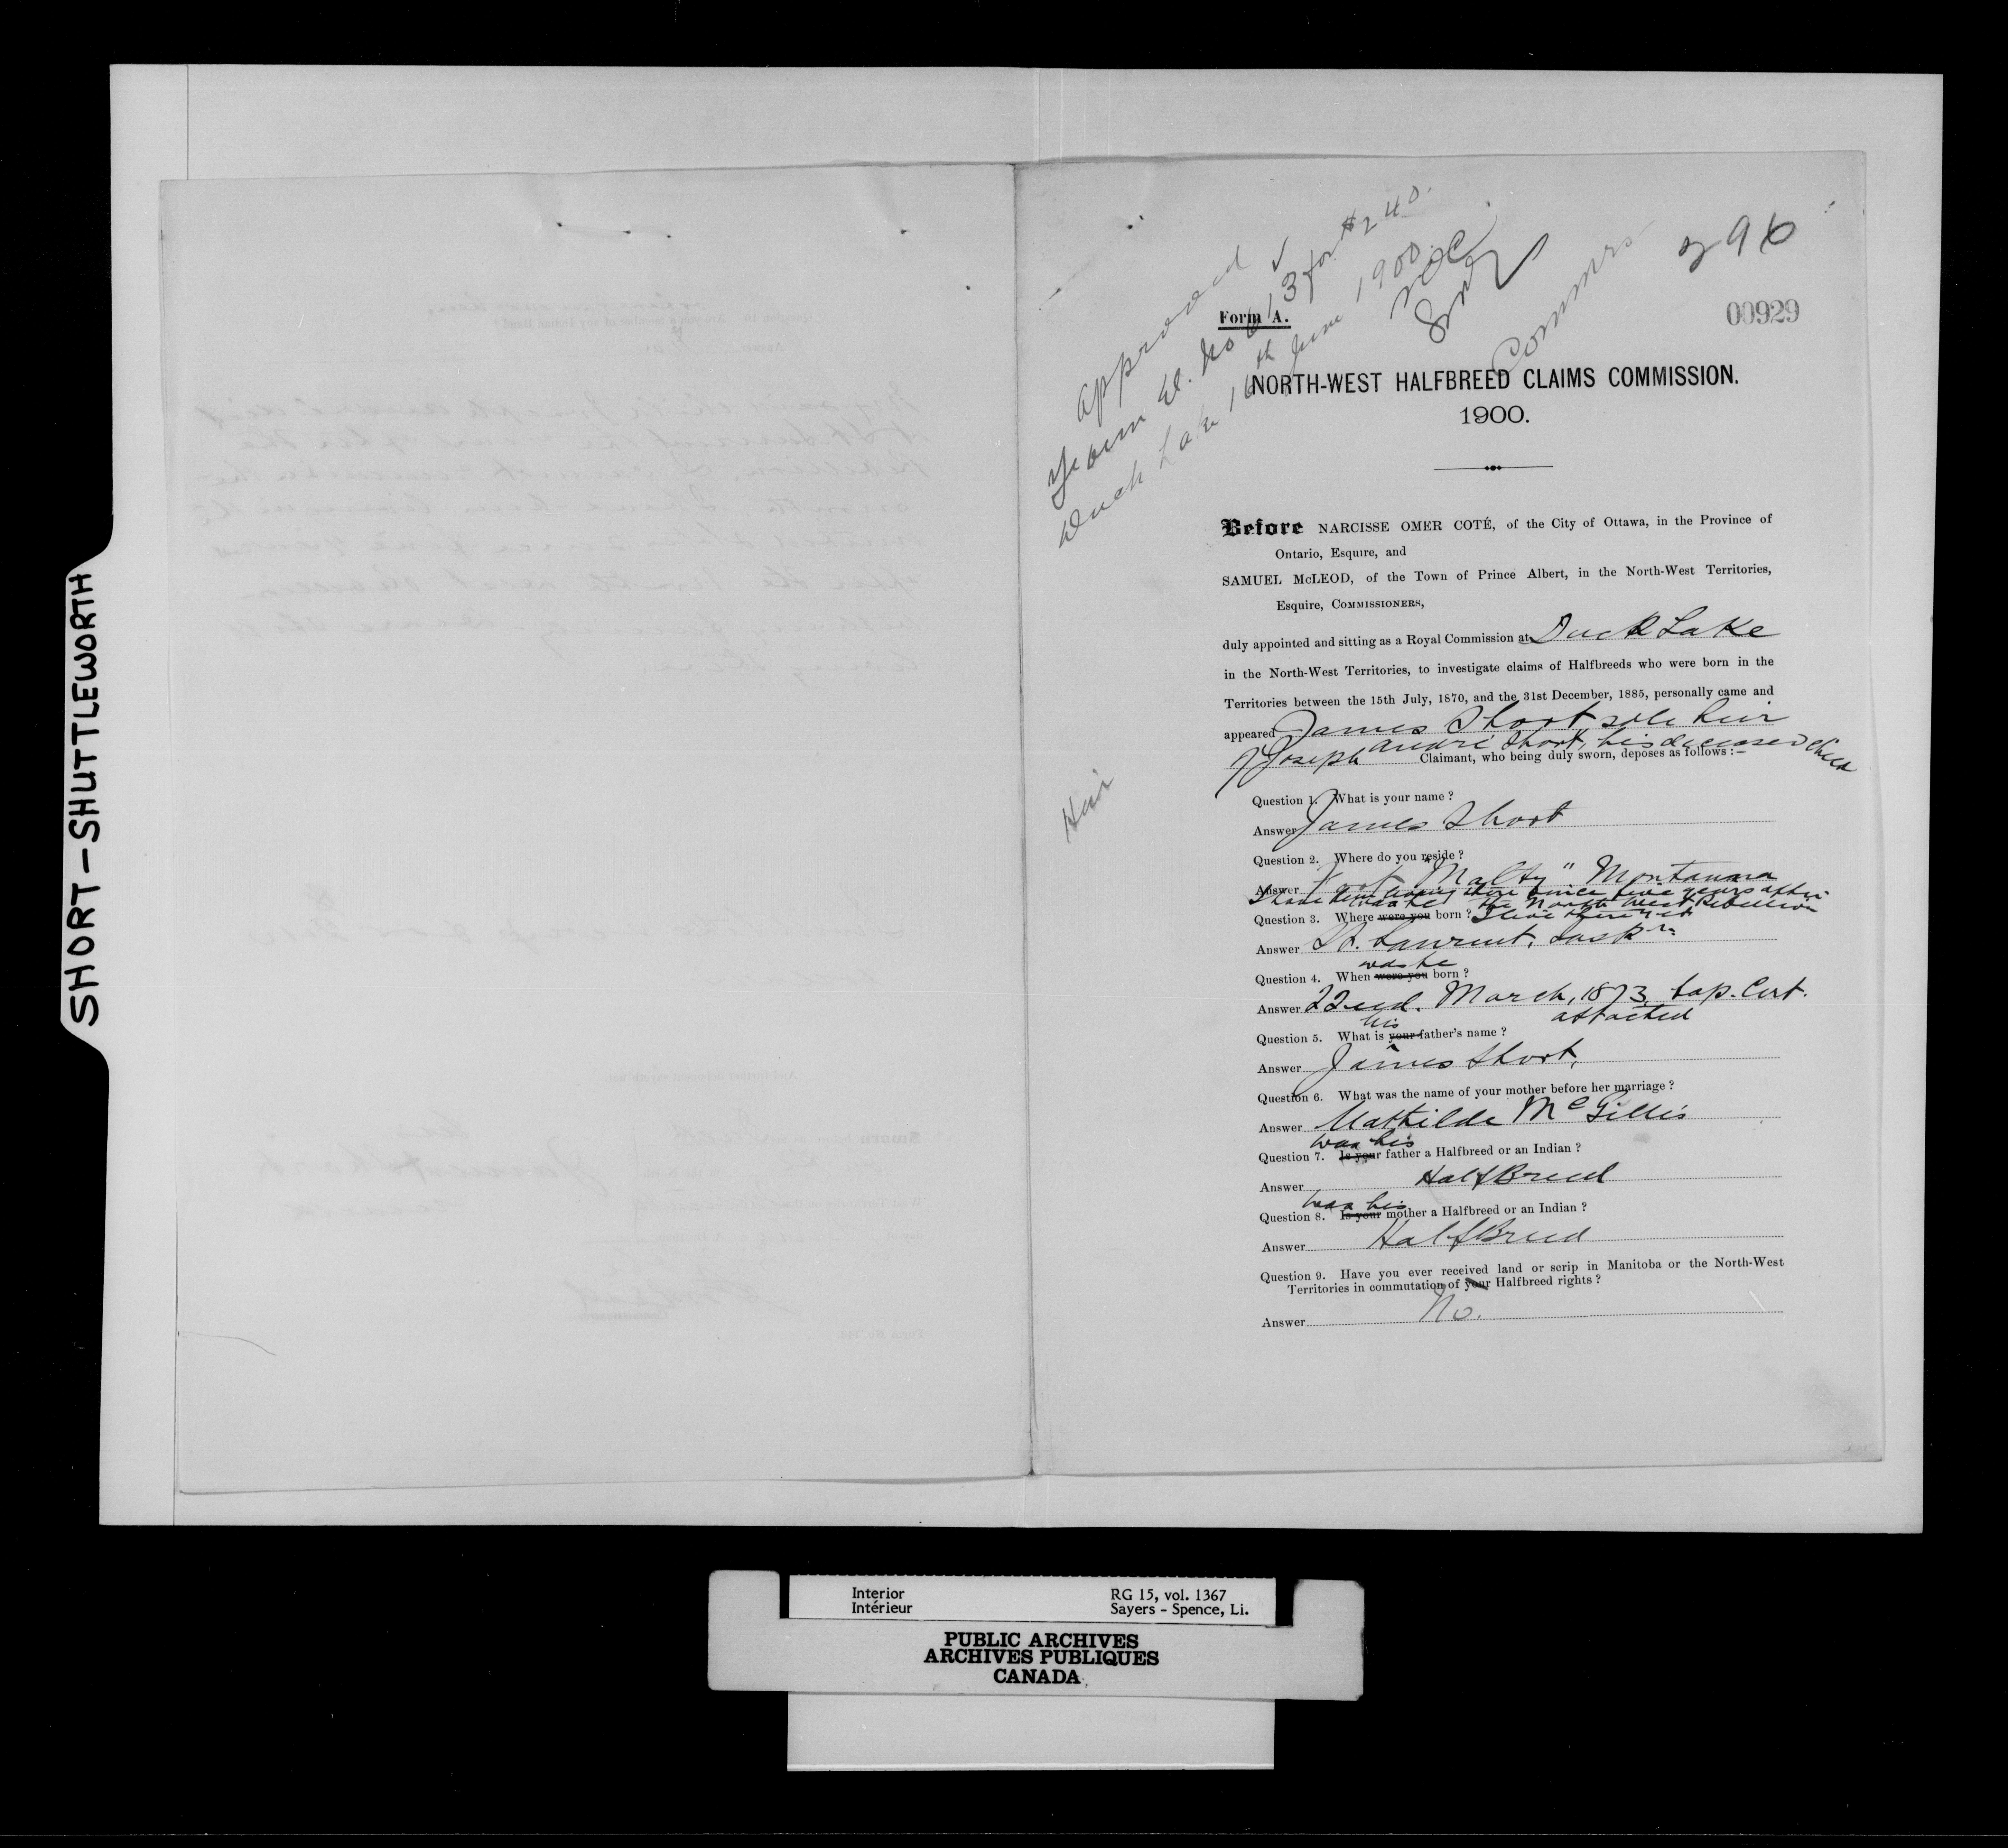 SHORT-SHUTTLEWORTH
approved
for $240.
Duck Lake 16th June 1900
NOC
Commrs
296
00929
Form A.
NORTH-WEST HALFBREED CLAIMS COMMISSION.
1900.
Before NARCISSE OMER COTÉ, of the City of Ottawa, in the Province of
Ontario, Esquire, and
SAMUEL McLEOD, of the Town of Prince Albert, in the North-West Territories,
Esquire, COMMISSIONERS,
duly appointed and sitting as a Royal Commission at Duck Lake
in the North-West Territories, to investigate claims of Halfbreeds who were born in the
Territories between the 15th July, 1870, and the 31st December, 1885, personally came and
appeared James Short, sole heir
of Joseph André Short, his deceased child
Claimant, who being duly sworn, deposes as follows :—
Heir
Question 1. What is your name ?
Answer James Short
Question 2. Where do you reside ?
Answer "Malty" Montanna
I have been living there since five years after
the North West Rebellion
I live there yet
was he
Question 3. Where were you born ?
Answer St. Laurent, Sask
was he
Question 4. When were you born ?
Answer 22nd. March, 1873. bap. Cert.
attached
his
Question 5. What is your father's name ?
Answer James Short,
Question 6. What was the name of your mother before her marriage ?
Answer Mathilde McGillis
was his
Question 7. Is your father a Halfbreed or an Indian ?
Answer HalfBreed
was his
Question 8. Is your mother a Halfbreed or an Indian ?
Answer HalfBreed
Question 9. Have you ever received land or scrip in Manitoba or the North-West
Territories in commutation of your Halfbreed rights ?
Answer No.
Interior
Intérieur
RG 15, vol. 1367
Sayers - Spence, Li.
PUBLIC ARCHIVES
ARCHIVES PUBLIQUES
CANADA